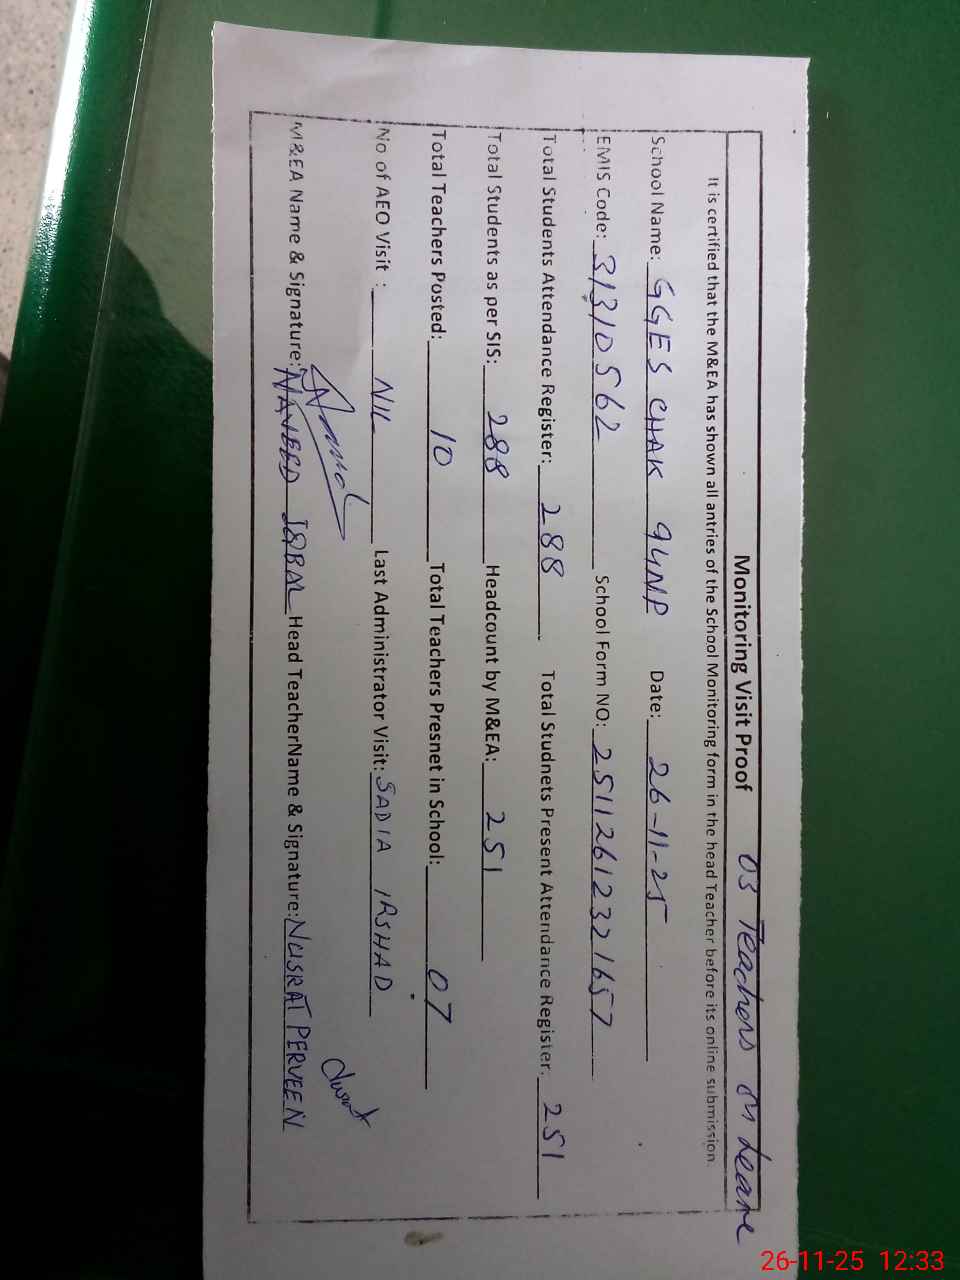 Monitoring Visit Proof 03 Teachers on Leave
It is certified that the M&EA has shown all antries of the School Monitoring form in the head Teacher before its online submission.
School Name: GGES CHAK 94NP Date: 26-11-25
EMIS Code: 31310562 School Form NO: 25112612321657
Total Students Attendance Register: 288 Total Studnets Present Attendance Register: 251
Total Students as per SIS: 288 Headcount by M&EA: 251
Total Teachers Posted: 10 Total Teachers Presnet in School: 07
No of AEO Visit : NIL Last Administrator Visit: SADIA IRSHAD
M&EA Name & Signature: NAVEED IQBAL Head TeacherName & Signature: NUSRAT PERVEEN
26-11-25 12:33